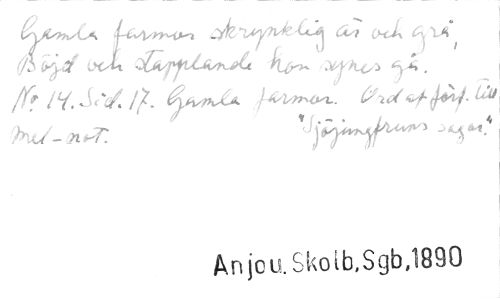 Gamla farmor skrynklig är och grå,
Böjd och stapplande hon synes gå.
No 14. Sid. 17. Gamla farmor. Ord af förf. till
mel-not. "Sjöjungfruns sagor."
Anjou. Skolb, Sgb, 1890